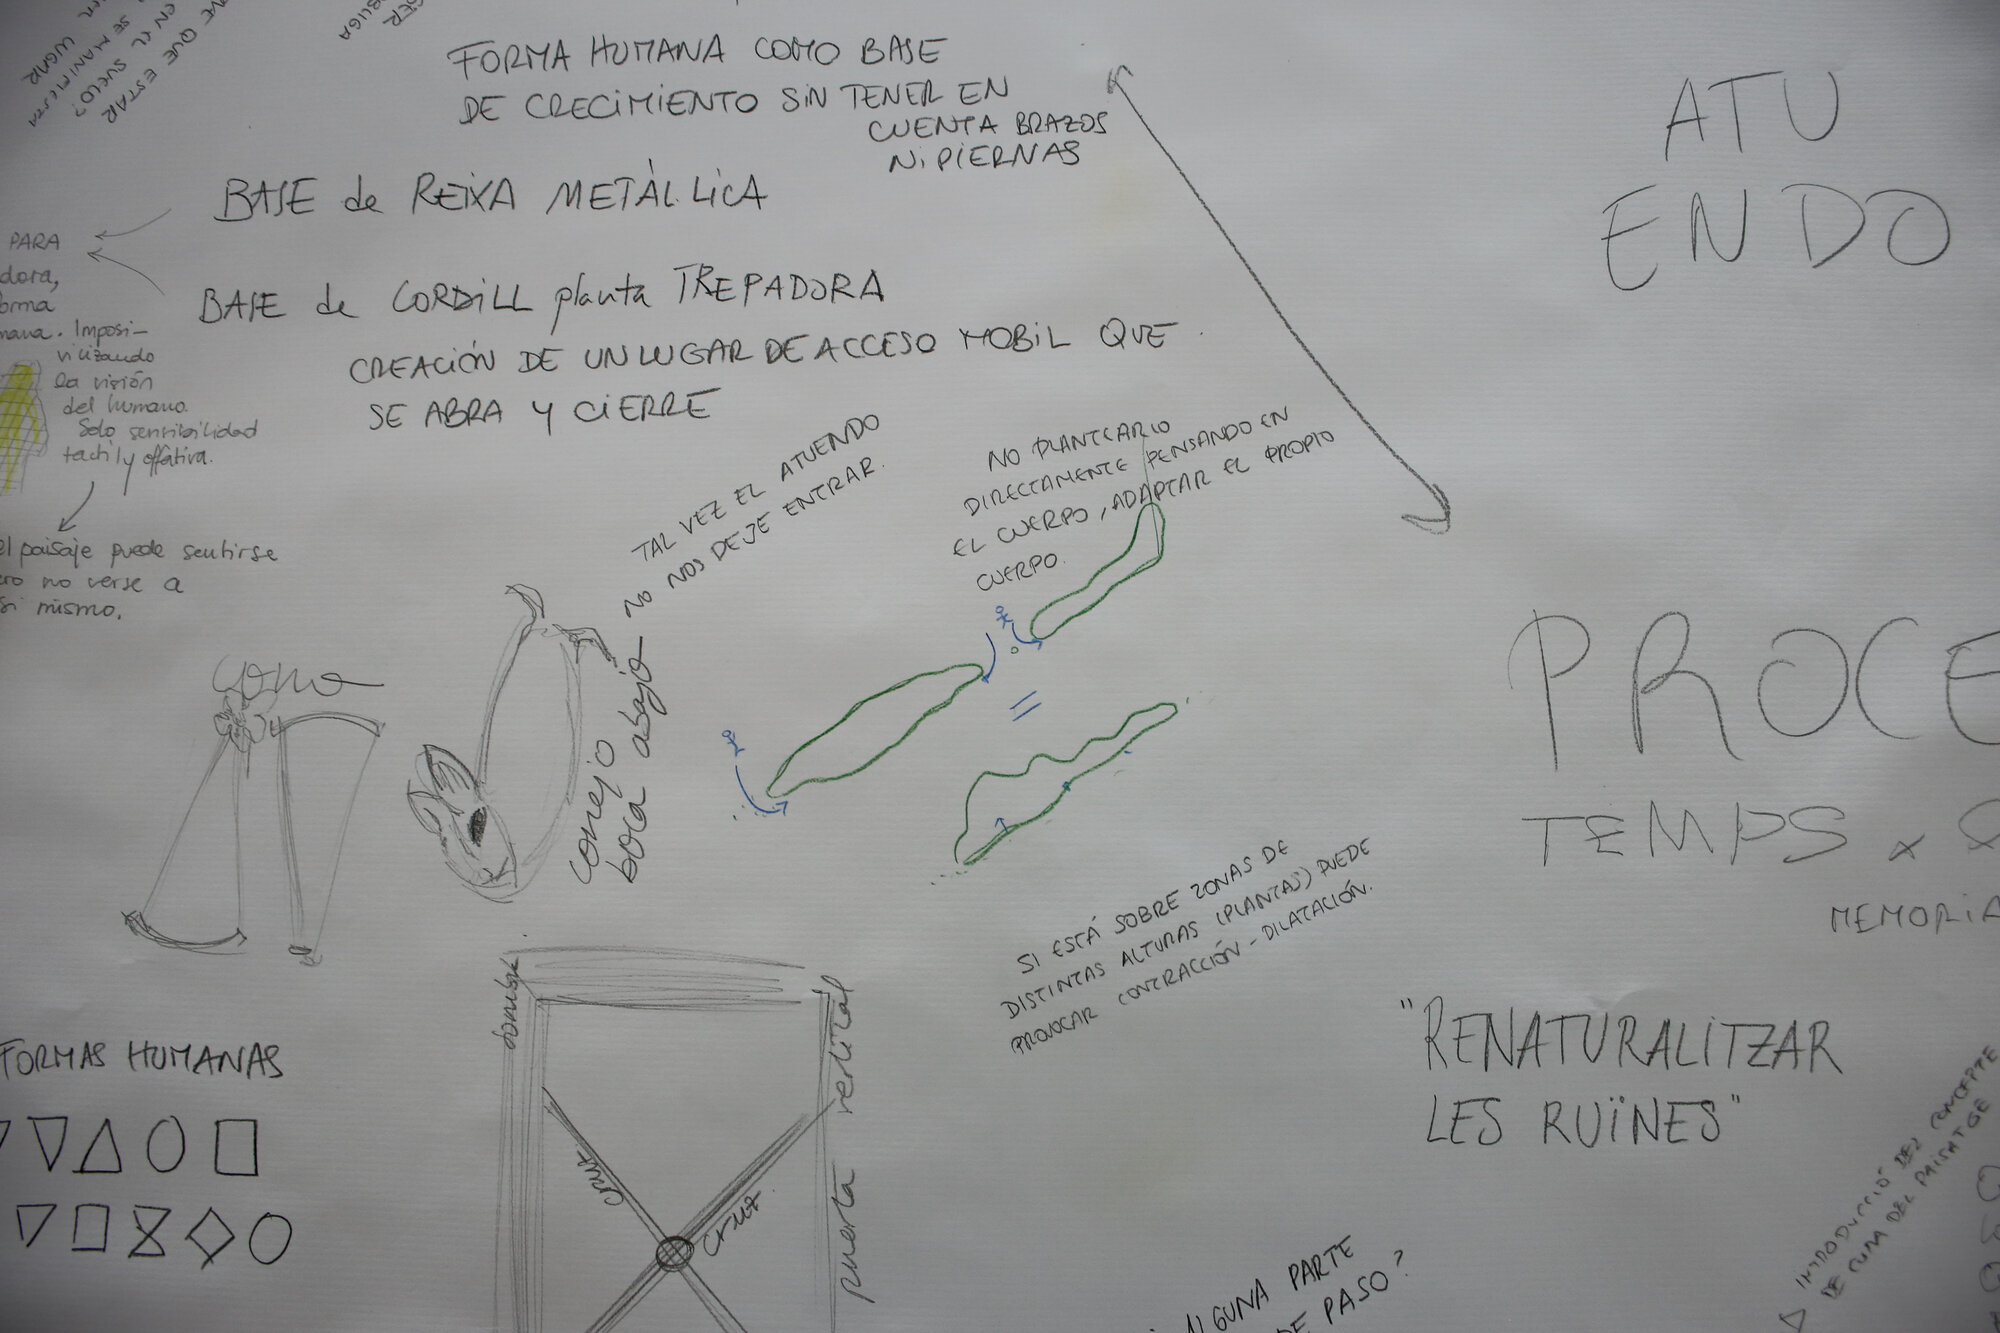 QUE ESTAR
EN EL SUELO?
SE MANIFIESTA
LUGAR
OBLIGA
FORMA HUMANA COMO BASE
DE CRECIMIENTO SIN TENER EN
CUENTA BRAZOS
NI PIERNAS
BASE de REIXA METÀL.LICA
BASE de CORDILL planta TREPADORA
CREACIÓN DE UN LUGAR DE ACCESO MOBIL QUE
SE ABRA Y CIERRE
PARA
dora,
orma
mana. Imposi-
vilizando
la visión
del humano.
Solo sensibilidad
tactil y
el paisaje puede sentirse
ero no verse a
si mismo.
TAL VEZ EL ATUENDO
NO NOS DEJE ENTRAR.
NO PLANTEARLO
DIRECTAMENTE PENSANDO EN
EL CUERPO, ADAPTAR EL PROPIO
CUERPO.
conejo
boca abajo
SI ESTÁ SOBRE ZONAS DE
DISTINTAS ALTURAS (PLANTAS) PUEDE
PROVOCAR CONTRACCIÓN - DILATACIÓN.
FORMAS HUMANAS
cruz
cruz
puerta vertical
ATU
ENDO
PROCE
TEMPS x
MEMORIA
"RENATURALITZAR
LES RUÏNES"
INTRODUCCIÓ DEL CONCEPTE
DE RUNA DEL PAISATGE
ALGUNA PARTE
DE PASO?